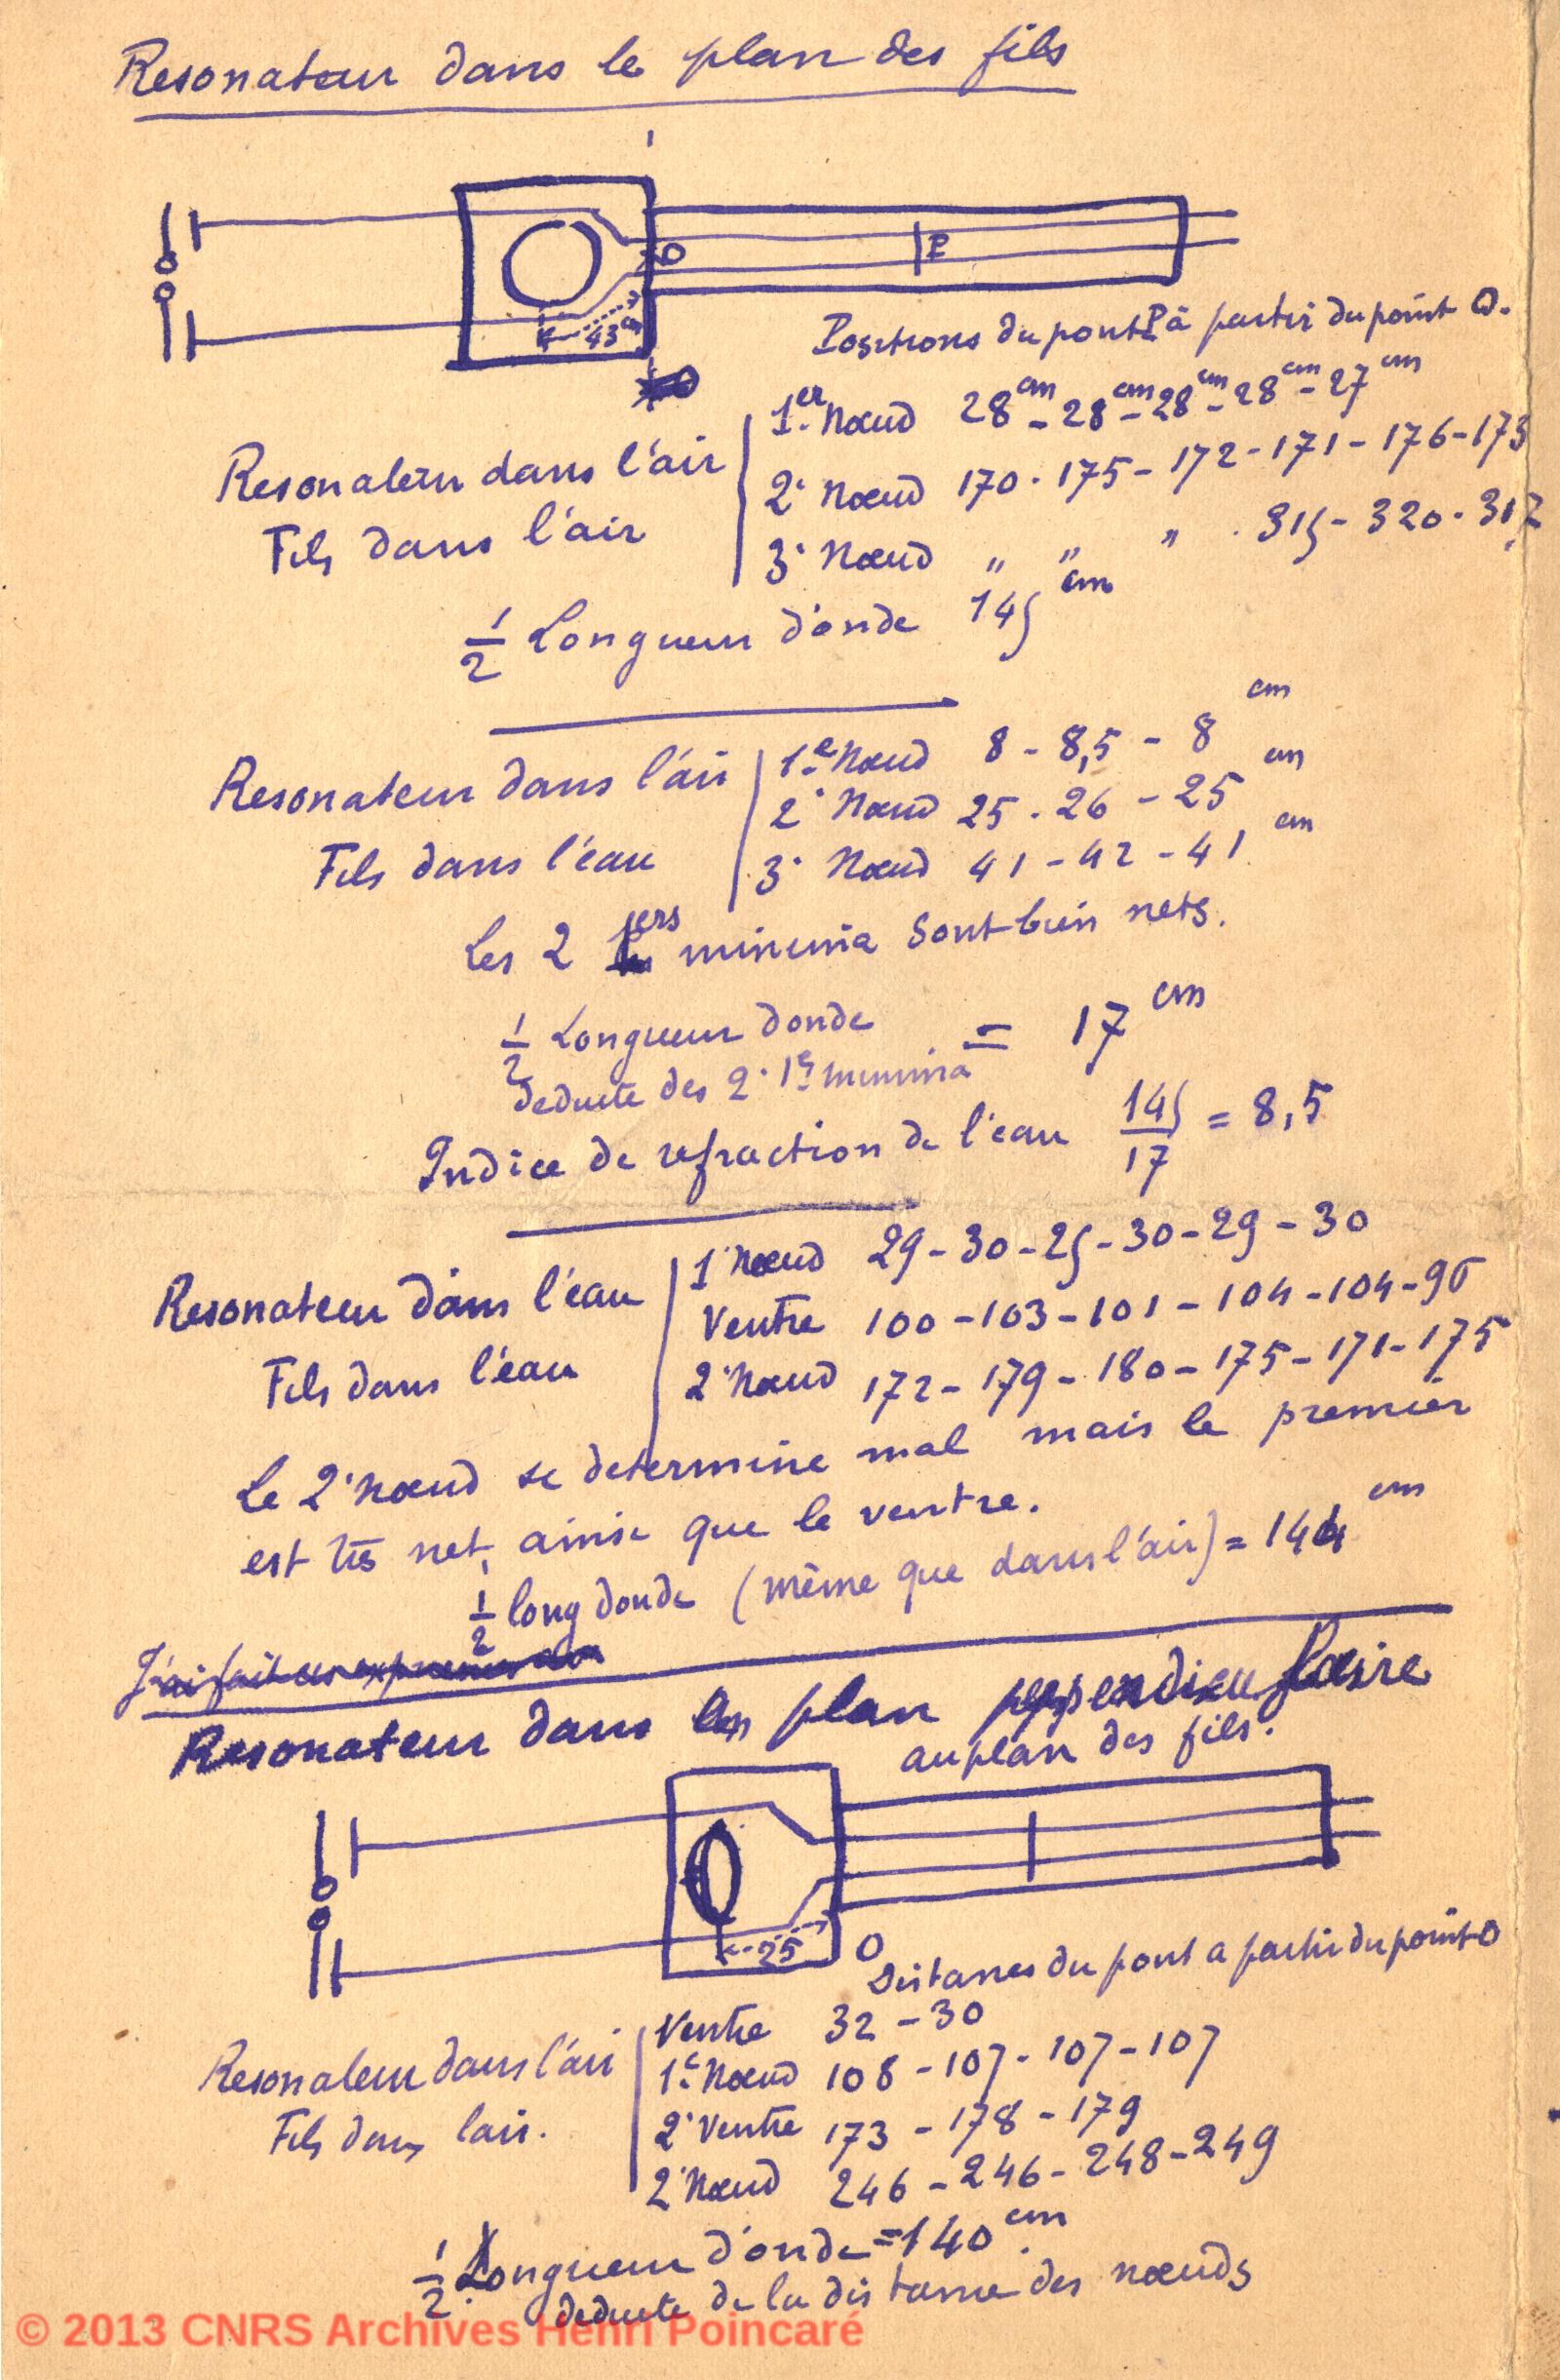 Resonateur dans le plan des fils
O
P
43 cm
Positions du pont P à partir du point O.
Resonateur dans l'air
Fils dans l'air
1er Nœud 28 cm - 28 cm - 28 cm - 28 cm - 27 cm
2e Nœud 170 - 175 - 172 - 171 - 176 - 173
3e Nœud " " " . 315 - 320 - 317
1/2 Longueur d'onde 145 cm
Resonateur dans l'air
Fils dans l'eau
1e Nœud 8 - 8,5 - 8 cm
2e Nœud 25 - 26 - 25 cm
3e Nœud 41 - 42 - 41 cm
Les 2 1ers minima sont bien nets.
1/2 Longueur donde = 17 cm
deduite des 2 1ers minima
Indice de refraction de l'eau 145/17 = 8,5
Resonateur dans l'eau
Fils dans l'eau
1e Nœud 29 - 30 - 25 - 30 - 29 - 30
Ventre 100 - 103 - 101 - 104 - 104 - 96
2e Nœud 172 - 179 - 180 - 175 - 171 - 175
Le 2e nœud se determine mal mais le premier
est très net, ainsi que le ventre.
1/2 long donde (même que dans l'air) = 144 cm
J'ai fait
Resonateur dans le plan perpendiculaire
au plan des fils.
25
O
Distances du pont a partir du point O
Resonateur dans l'air
Fils dans lair.
Ventre 32 - 30
1e Nœud 108 - 107 - 107 - 107
2e Ventre 173 - 178 - 179
2e Nœud 246 - 246 - 248 - 249
1/2 Longueur d'onde = 140 cm.
deduite de la distance des nœuds
© 2013 CNRS Archives Henri Poincaré